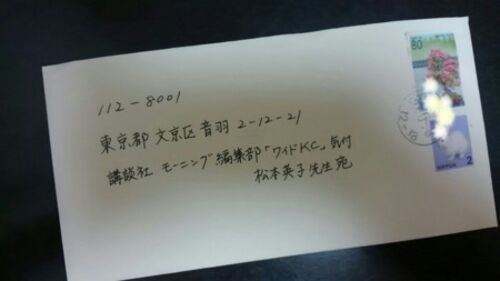 80
112-8001
東京都 文京区 音羽 2-12-21
講談社 モーニング編集部「ワイドKC」気付
松本英子先生宛
NIPPON 2